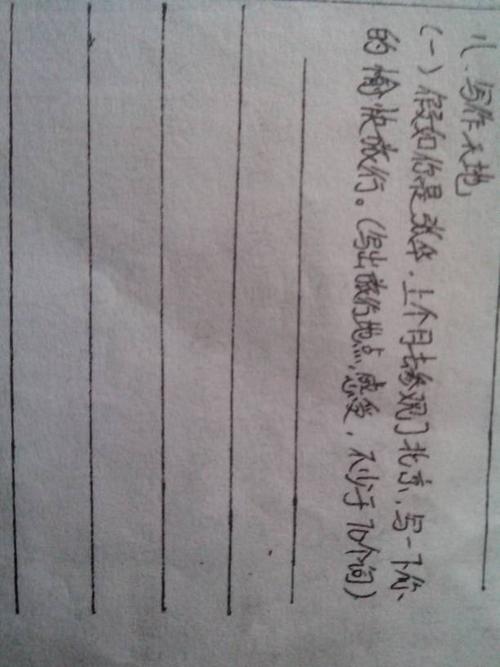 八、写作天地
(一)假如你是张华,上个月去参观了北京,写一下你
的愉快旅行。(写出旅行地点,感受,不少于70个词)